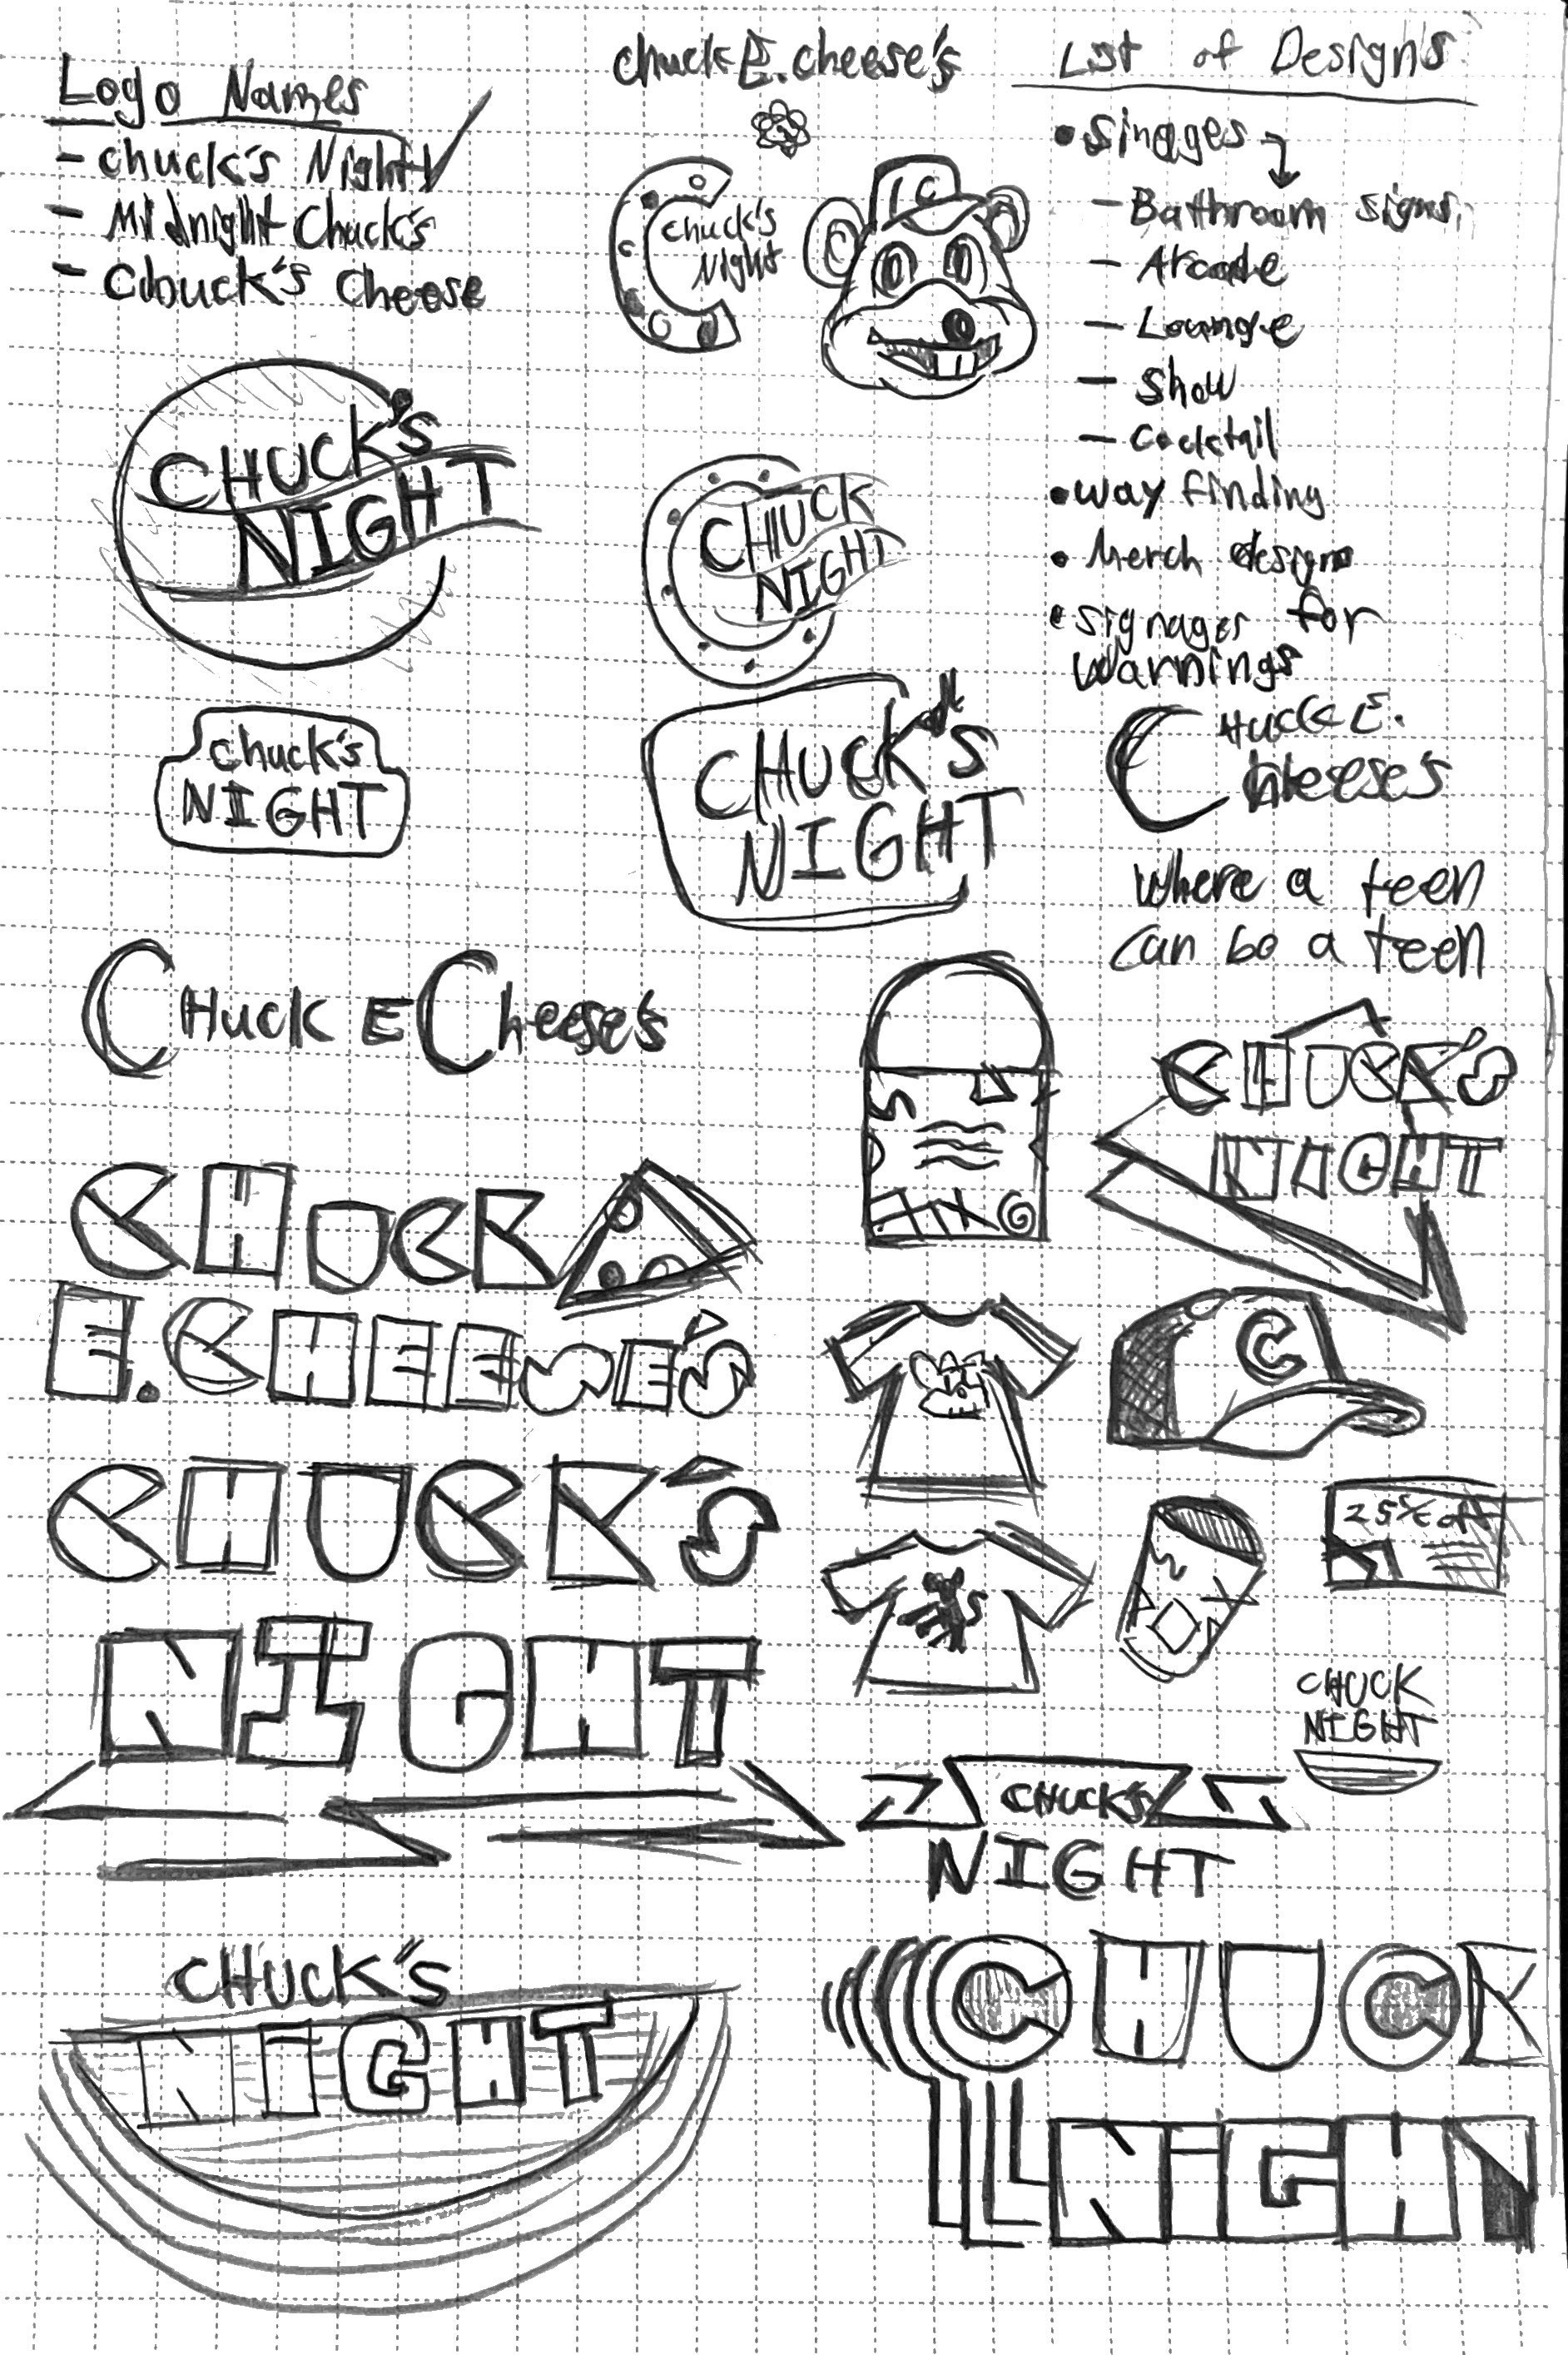 Logo Names
- chuck's Night ✓
- Midnight Chuck's
- Chuck's Cheese
chuck E. cheese's
C
chuck's
Night
C
List of Designs
• Sinages
- Bathroom signs
- Arcade
- Lounge
- Show
- Cocktail
• way finding
• Merch design
• signages for
warnings
CHUCK'S
NIGHT
CHUCK
NIGHT
chuck's
NIGHT
CHUCK'S
NIGHT
CHUCK E.
Cheese's
Where a teen
can be a teen
CHUCK E Cheese's
CHUCK'S
NIGHT
CHUCK
E. CHEESE'S
C
CHUCK'S
NIGHT
25% off
CHUCK
NIGHT
CHUCK'S
NIGHT
CHUCK'S
NIGHT
CHUCK
NIGHT